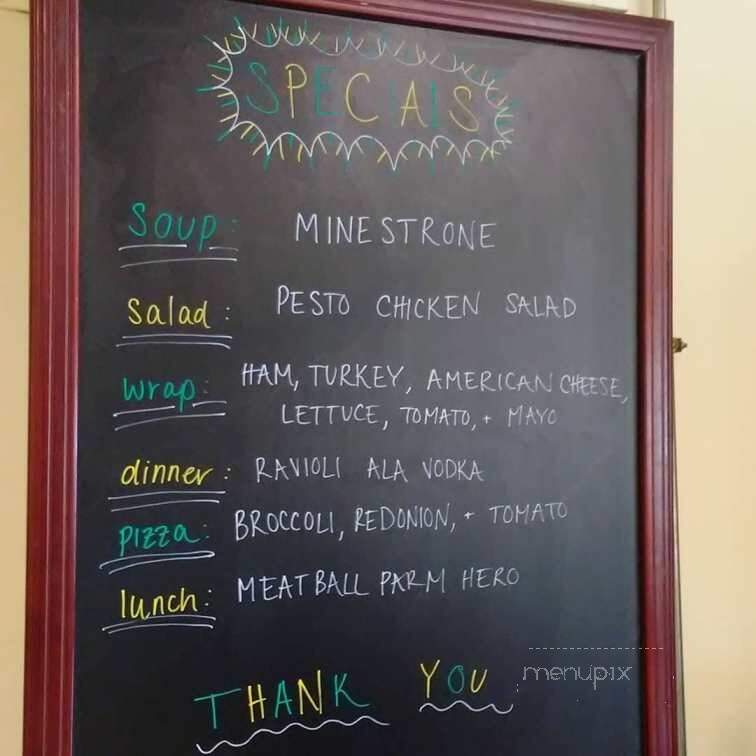 SPECIALS
Soup: MINESTRONE
Salad: PESTO CHICKEN SALAD
wrap: HAM, TURKEY, AMERICAN CHEESE,
LETTUCE, TOMATO, + MAYO
dinner: RAVIOLI ALA VODKA
pizza: BROCCOLI, RED ONION, + TOMATO
lunch: MEATBALL PARM HERO
THANK YOU
menupix